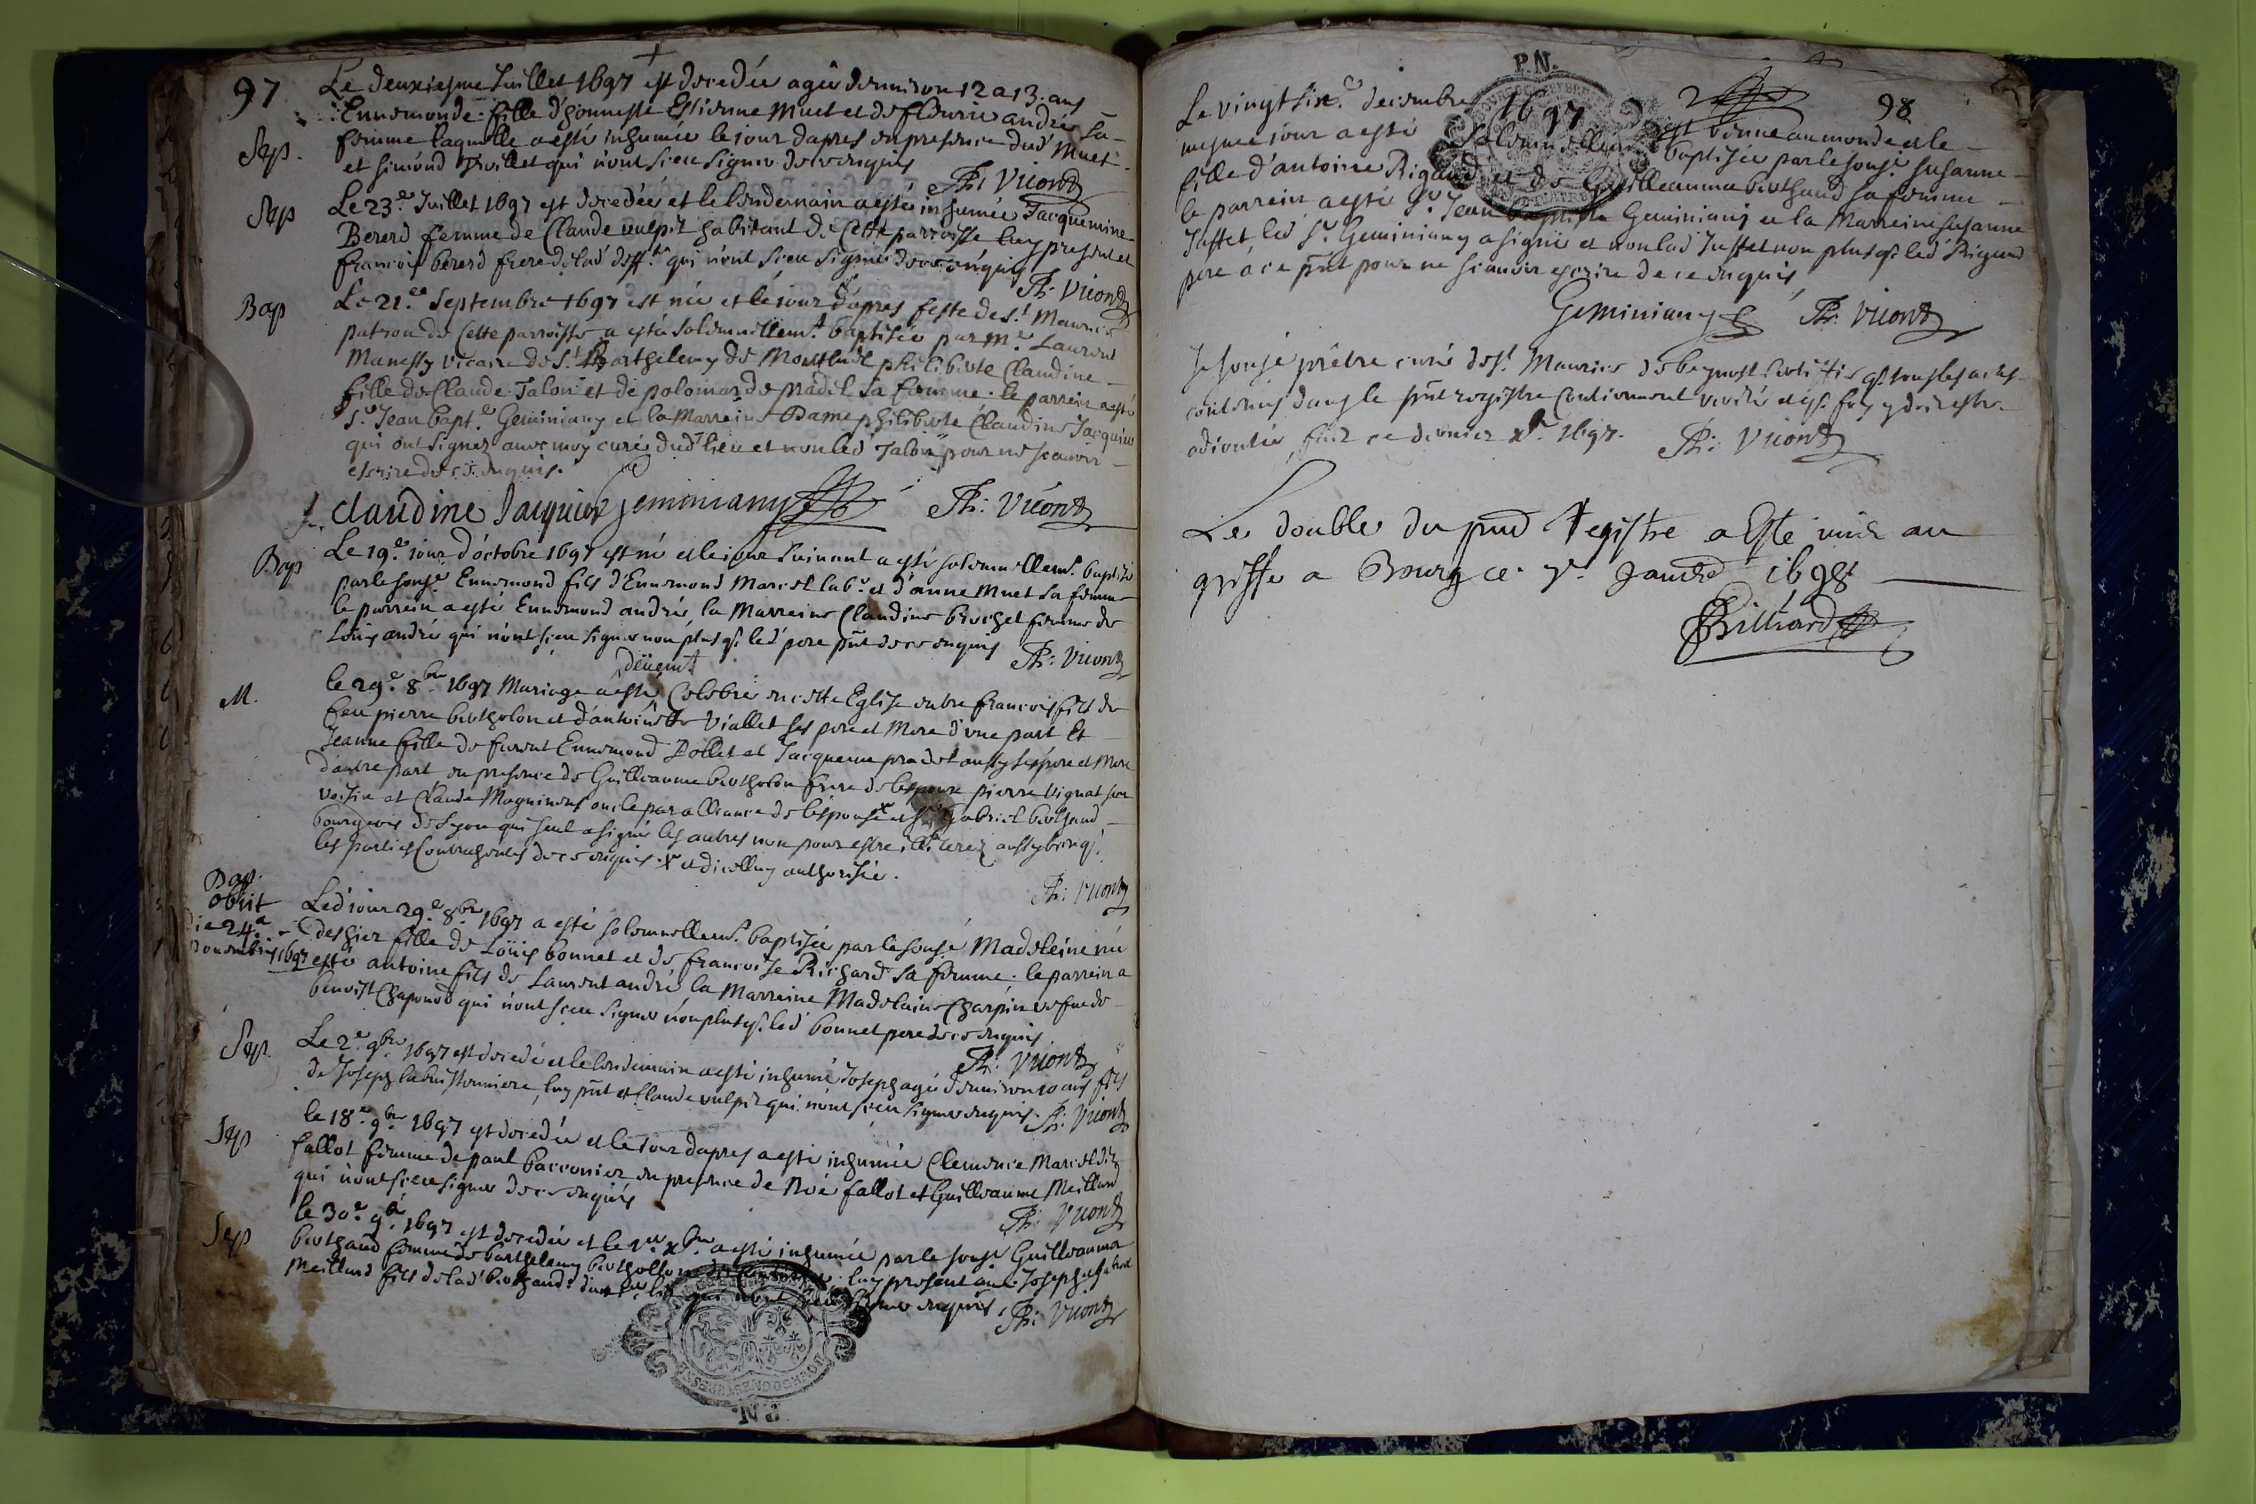 97
Le deuxiesme Juillet 1697 est decedée agée d'environ 12 a 13. ans
Ennemonde fille d'honneste Estienne Muet et de fleurie andré sa
Sep.
femme laquelle a esté inhumée le jour dapres en presence dud Muet
et simond qui n'ont sceu signer de ce enquis
Ph: Vicond
Sep
Le 23.e Juillet 1697 est decedée et le lendemain a esté inhumée Jacquemine
Bererd femme de Claude vulpit habitant de Cette parroisse luy present et
francois bererd frere de lad deff.te qui n'ont sceu signer de ce enquis
Ph: Vicond
Bap
Le 21.e Septembre 1697 est née et le jour d'apres feste de s.t Maurice
patron de Cette parroisse a esté solemnellem.t baptisée par M.e Laurent
Manessy vicaire de s.t Barthelemy de Montluel philiberte Claudine
fille de Claude Jalon et de de pradel sa femme. le parrein a esté
S.r Jean bapt.e Geminiany et la Marreine Dame philiberte Claudine Jacquier
qui ont signez avec moy curé dud lieu et non led Jalon pour ne sçavoir
escrire de ce enquis.
Claudine Jacquier Geminiany Ph: Vicond
Bap
Le 19.e jour d'octobre 1697 est né et le jour suivant a esté solemnellem.t baptisé
par le sousé Ennemond fils d'Ennemond Marcel lab.r et d'anne Muet sa femme
le parrein a esté Ennemond andré, la Marreine Claudine brochet femme de
Louis andré qui n'ont sceu signer non plus q. led pere pñt de ce enquis
Ph: Vicond
deüem.t
M.
le 29.e 8.bre 1697 Mariage a esté Celebré en cette Eglise entre francois fils de
feu pierre bertholon et d'antoinette Viallet ses pere et Mere d'une part Et
Jeanne fille de furent Ennemond Dollet et Jacqueme pradel aussy ses pere et Mere
d'autre part, en presence de Guilleaume bertholon frere de lespoux pierre vignat son
voisin et Claude Magninot oncle par alliance de l'espouse x et S.r Gabriel berthaud
bourgeois de Lyon qui seul a signé les autres non pour estre illiterez aussy bien q.
les parties Contrahentes de ce enquis. x et d'icelluy authorisée.
Ph: Vicond
Bap.
obiit
die 24.a
novembris 1697
Led jour 29.e 8.bre 1697 a esté solemnellem.t baptisée par le sousé Madeleine née
fille de Loüis bonnet et de francoise Richard sa femme; le parrein a
esté antoine fils de Laurent andré, la Marreine Madelaine Charpin vefve de
benoist Chaponod qui n'ont sceu signer non plus q. led bonnet pere de ce enquis
Ph: Vicond
Sep.
Le 2.e 9.bre 1697 est decedé et le lendemain a esté inhumé Joseph agé d'environ 10 ans fils
de Joseph labuissonniere, luy pñt et Claude vulpit qui n'ont sceu signer enquis. Ph: Vicond
Sep
le 18.e 9.bre 1697 est decedée et le jour dapres a esté inhumée Clemence Marcel dite
fallot femme de paul bacconier en presence de Noé fallot et Guilleaume Meilland
qui n'ont sceu signer de ce enquis
Ph: Vicond
Sep
le 30.e 9.bre 1697 est decedée et le 1.er x.bre a esté inhumée par le sousé Guilleauma
berthaud femme de barthelemy bertholon luy present et Joseph
Meilland fils de lad berthaud qui n'ont sceu signer enquis, Ph: Vicond
P.N.
P.N.
2
98
Le vingt six.e decembre 1697 est venue au monde et le
mesme jour a esté solemnellem.t baptisée par le sousé susanne
fille d'antoine Rigaud et de Guilleauma berthaud sa femme
le parrein a esté S.r Jean baptiste Geminiany et la Marreine susanne
Juffet, led S.r Geminiany a signé et non lad Juffet non plus q. led Rigaud
pere à ce pñt pour ne scauoir escrire de ce enquis
Geminiany Ph: Vicond
Je sousé prêtre curé de s.t Maurice de beynost Certiffie q. tous les actes
contenus dans le pñt registre Contiennent verité et q. foy y doit estre
adjoutée, fait ce dernier x.bre 1697. Ph: Vicond
Le double du pnt Registre a Esté mis au
greffe a Bourg ce 7.e Janvier 1698
Billiard